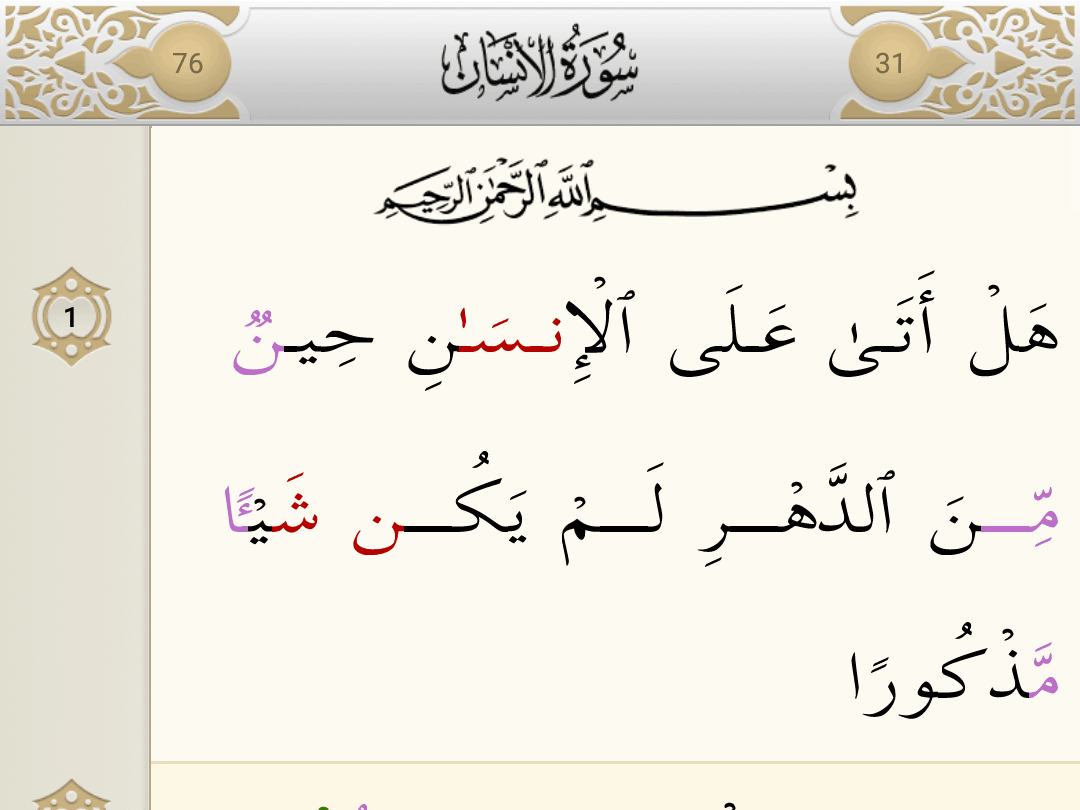 76 سُورَةُ الإِنْسَانِ 31
بِسْمِ ٱللَّهِ ٱلرَّحْمَٰنِ ٱلرَّحِيمِ
1
هَلْ أَتَىٰ عَلَى ٱلْإِنسَـٰنِ حِينٌ
مِّنَ ٱلدَّهْرِ لَمْ يَكُن شَيْـًٔا
مَّذْكُورًا